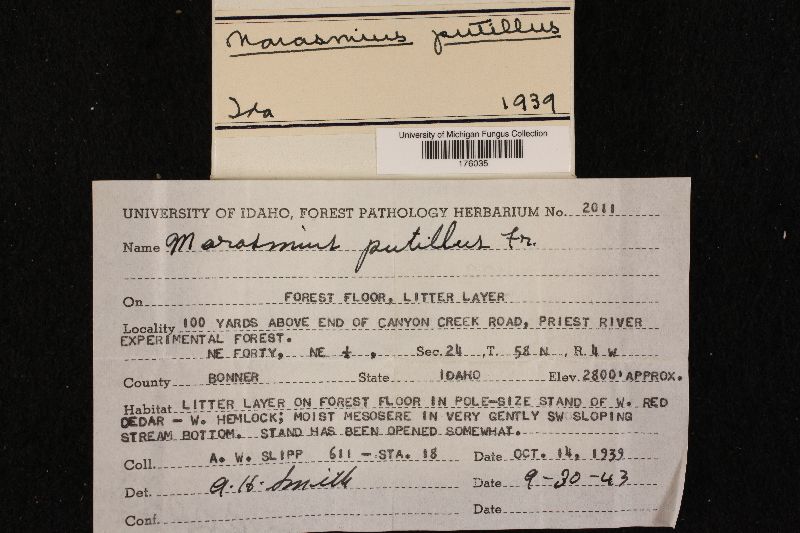 Marasmius putillus
Ida 1939
University of Michigan Fungus Collection
176035
UNIVERSITY OF IDAHO, FOREST PATHOLOGY HERBARIUM No. 2011
Name Marasmius putillus Fr.
On FOREST FLOOR, LITTER LAYER
Locality 100 YARDS ABOVE END OF CANYON CREEK ROAD, PRIEST RIVER
EXPERIMENTAL FOREST.
NE FORTY, NE ¼, Sec. 24, T. 58 N, R. 4 W
County BONNER State IDAHO Elev. 2800' APPROX.
Habitat LITTER LAYER ON FOREST FLOOR IN POLE-SIZE STAND OF W. RED
CEDAR - W. HEMLOCK; MOIST MESOSERE IN VERY GENTLY SW SLOPING
STREAM BOTTOM. STAND HAS BEEN OPENED SOMEWHAT.
Coll. A. W. SLIPP 611 - STA. 18 Date OCT. 14, 1939
Det. A. H. Smith Date 9-30-43
Conf. Date